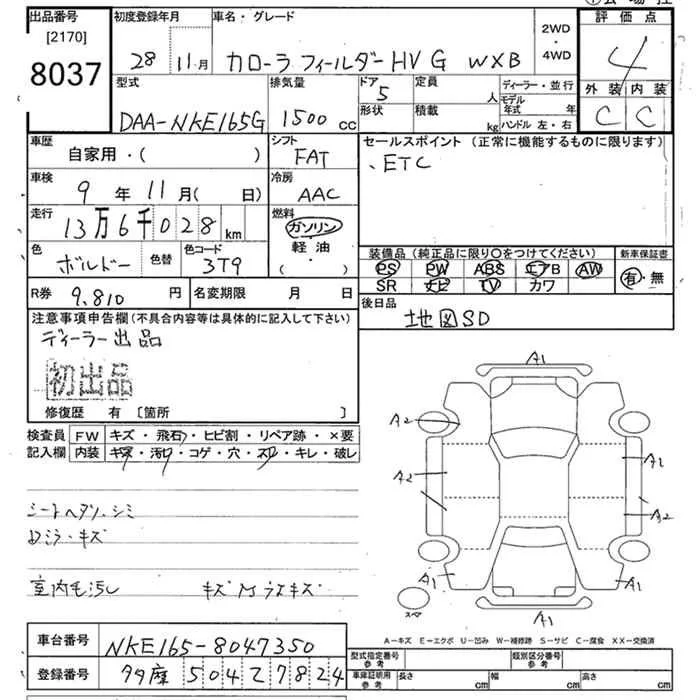 出品番号 初度登録年月 車名・グレード 評価点
[2170]
8037
28 11月 カローラフィールダーHV G WXB 2WD・4WD 4
型式 排気量 ドア 定員 ディーラー・並行 外装 内装
DAA-NKE165G 1500cc 5 人 モデル年式 年 C C
形状 積載 kg ハンドル 左・右
車歴 シフト セールスポイント (正常に機能するものに限ります)
自家用・( ) FAT 、ETC
車検 冷房
9年11月( 日) AAC
走行 燃料
13万6千028km ガソリン
軽油・( )
色 色替 色コード 装備品 (純正品に限り〇をつけてください) 新車保証書
ボルドー 3T9 PS PW ABS エアB AW 有・無
SR ナビ TV カワ
R券 9,810円 名変期限 月 日 後日品
地図SD
注意事項申告欄(不具合内容等は具体的に記入して下さい)
ディーラー出品
初出品
修復歴 有 [箇所 ]
検査員 FW キズ・飛石・ヒビ割・リペア跡・×要
記入欄 内装 キズ・汚れ・コゲ・穴・スレ・キレ・破レ
シートヘタリ、シミ
キズ
室内毛汚し
A1
A2
A2
A1
A2
A1
A1
A1
スペア
A-キズ E-エクボ U-凹み W-補修跡 S-サビ C-腐食 XX-交換済
車台番号 NKE165-8047350
型式指定番号 参考 類別区分番号 参考
登録番号 多摩 504 7824
車庫証明用 参考 長さ cm 幅 cm 高さ cm